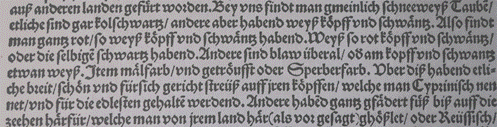 auß anderen landen gefürt worden. Bey vns findt man gmeinlich schneeweyß Taubē/
etliche sind gar kolschwartz/ andere aber habend weyß köpff vnd schwäntz. Also findt
man gantz rot/ so weyß köpff vnd schwäntz habend. Weyß so rot köpff vnd schwäntz/
oder die selbigē schwartz habend. Andere sind blaw überal/ od̓ am kopff vnd schwantz
etwan weyß. Item mälfarb/ vnd getröufft oder Sperberfarb. Vber diß habend etli-
che breit/ schön vnd fürsich gericht streüß auff jren köpffen/ welche man Cyprinisch nen
net/ vnd für die edlesten gehaltē werdend. Andere habēd gantz gfädert füß biß auff die
zeehen härfür/ welche man von jrem land här(als vor gesagt)ghößlet/ oder Reüssisch/